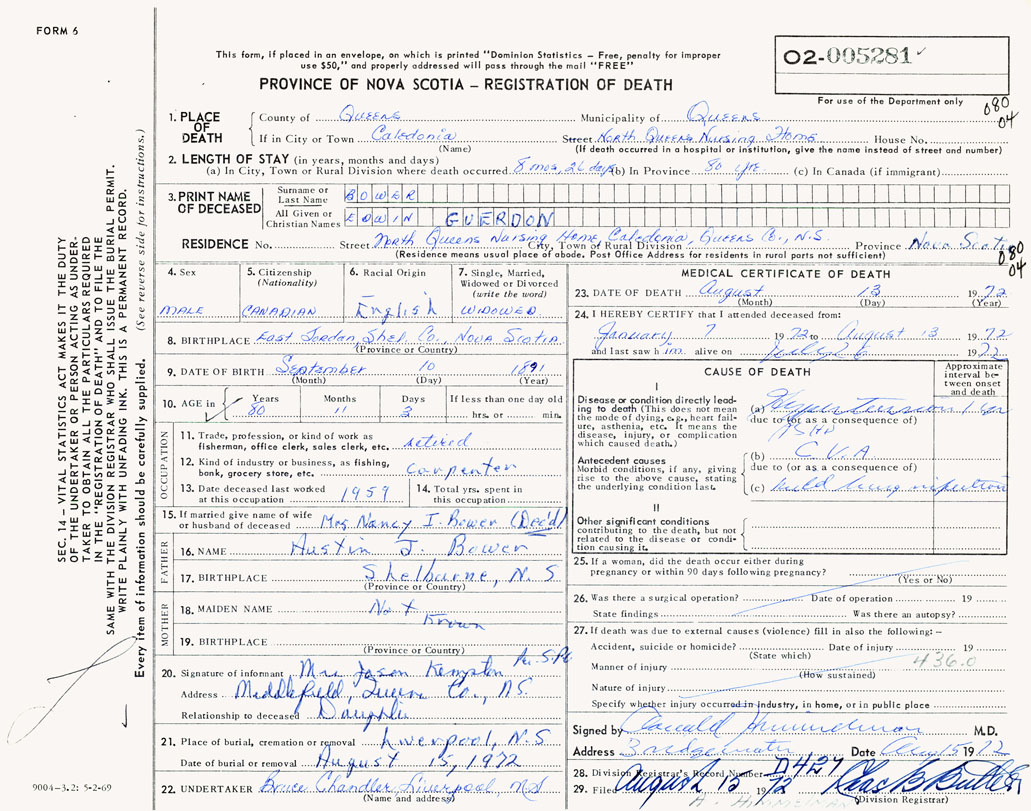 FORM 6
This form, if placed in an envelope, on which is printed "Dominion Statistics – Free, penalty for improper
use $50," and properly addressed will pass through the mail "FREE"
PROVINCE OF NOVA SCOTIA – REGISTRATION OF DEATH
O2-005281
For use of the Department only
080
04
1. PLACE OF DEATH County of Queens Municipality of Queens
If in City or Town Caledonia Street North Queens Nursing Home House No.
(Name) (If death occurred in a hospital or institution, give the name instead of street and number)
2. LENGTH OF STAY (in years, months and days)
(a) In City, Town or Rural Division where death occurred 8 mos, 26 days (b) In Province 80 yrs (c) In Canada (if immigrant)
3. PRINT NAME OF DECEASED Surname or Last Name BOWER
All Given or Christian Names EDWIN GUERDON
RESIDENCE No. Street North Queens Nursing Home Caledonia, Queens Co., N.S. City, Town of Rural Division Province Nova Scotia
(Residence means usual place of abode. Post Office Address for residents in rural parts not sufficient)
080
04
SEC. 14 – VITAL STATISTICS ACT MAKES IT THE DUTY
OF THE UNDERTAKER OR PERSON ACTING AS UNDER-
TAKER TO OBTAIN ALL THE PARTICULARS REQUIRED
IN THE "REGISTRATION OF DEATH" AND TO FILE THE
SAME WITH THE DIVISION REGISTRAR WHO SHALL ISSUE THE BURIAL PERMIT.
WRITE PLAINLY WITH UNFADING INK. THIS IS A PERMANENT RECORD.
Every item of information should be carefully supplied. (See reverse side for instructions.)
4. Sex MALE
5. Citizenship (Nationality) CANADIAN
6. Racial Origin English
7. Single, Married, Widowed or Divorced (write the word) WIDOWED
8. BIRTHPLACE East Jordan Shel. Co., Nova Scotia
(Province or Country)
9. DATE OF BIRTH September 10 1891
(Month) (Day) (Year)
10. AGE in Years 80 Months 11 Days 3 If less than one day old hrs. or min.
OCCUPATION
11. Trade, profession, or kind of work as fisherman, office clerk, sales clerk, etc. retired
12. Kind of industry or business, as fishing, bank, grocery store, etc. carpenter
13. Date deceased last worked at this occupation 1959
14. Total yrs. spent in this occupation
15. If married give name of wife or husband of deceased Mrs Nancy I. Bower (Dec'd)
FATHER
16. NAME Austin J. Bower
17. BIRTHPLACE Shelburne, N.S
(Province or Country)
MOTHER
18. MAIDEN NAME Not Known
19. BIRTHPLACE
(Province or Country)
20. Signature of informant Mrs Jason Kempton
Address Middlefield, Queens Co., N.S.
Relationship to deceased Daughter
21. Place of burial, cremation or removal Liverpool, N.S
Date of burial or removal August 15, 1972
22. UNDERTAKER Bruce Chandler, Liverpool, N.S
(Name and address)
9004-3.2: 5-2-69
MEDICAL CERTIFICATE OF DEATH
23. DATE OF DEATH August 13 1972
(Month) (Day) (Year)
24. I HEREBY CERTIFY that I attended deceased from:
January 7 1972 to August 13 1972
and last saw him alive on July 6 1972
CAUSE OF DEATH
Approximate interval between onset and death
I
Disease or condition directly leading to death (This does not mean the mode of dying, e.g., heart failure, asthenia, etc. It means the disease, injury, or complication which caused death.)
(a) Hypertension
due to (or as a consequence of)
ASHD
Antecedent causes
Morbid conditions, if any, giving rise to the above cause, stating the underlying condition last.
(b) C.V.A
due to (or as a consequence of)
(c) mild lung infection
II
Other significant conditions contributing to the death, but not related to the disease or condition causing it.
25. If a woman, did the death occur either during pregnancy or within 90 days following pregnancy?
(Yes or No)
26. Was there a surgical operation? Date of operation 19
State findings Was there an autopsy?
27. If death was due to external causes (violence) fill in also the following: –
Accident, suicide or homicide? Date of injury 19
(State which)
436.0
Manner of injury
(How sustained)
Nature of injury
Specify whether injury occurred in industry, in home, or in public place
Signed by Donald Himmelman M.D.
Address Bridgewater Date Aug 15 1972
28. Division Registrar's Record Number D427
29. Filed August 15 1972 Chas B Butler
(Division Registrar)
H. HIMMELMAN